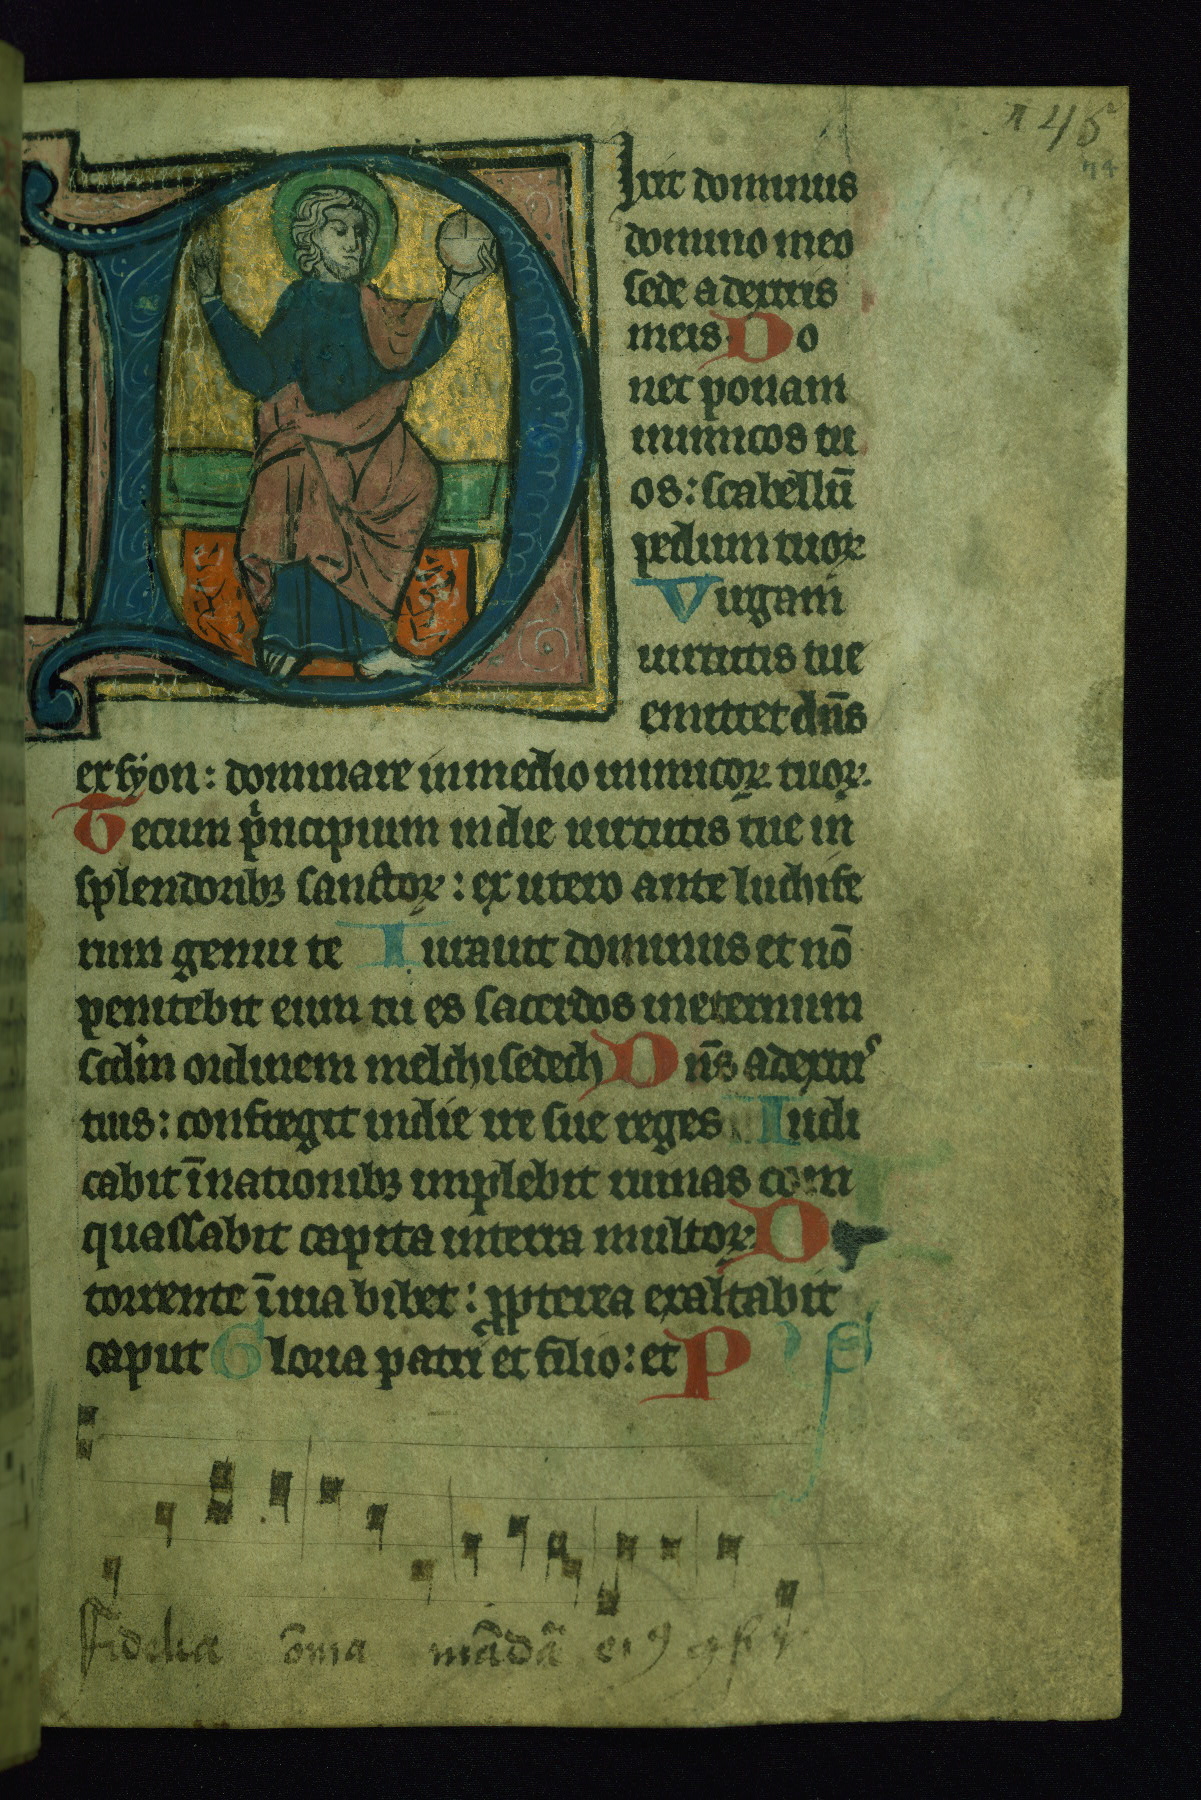 145
74
Dixit dominus
domino meo
sede a dextris
meis. Do
nec ponam
inimicos tu
os: scabellū
pedum tuoꝝ
Virgam
uirtutis tue
emittet dn̄s
ex syon: dominare in medio inimicoꝝ tuoꝝ.
Tecum pⁱncipium in die uirtutis tue in
splendoribꝫ sanctoꝝ: ex utero ante luchife
rum genui te Iurauit dominus et nō
penitebit eum tu es sacerdos in eternum
scdm̄ ordinem melchisedech Dn̄s a dextrⁱˢ
tuis: confregit in die ire sue reges Iudi
cabit ī nationibꝫ implebit ruinas con
quassabit capita in terra multoꝝ De
torrente ī uia bibet: ꝓpterea exaltabit
caput Gloria patri et filio: et P
Fidelia ōnia mādā eiꝯ